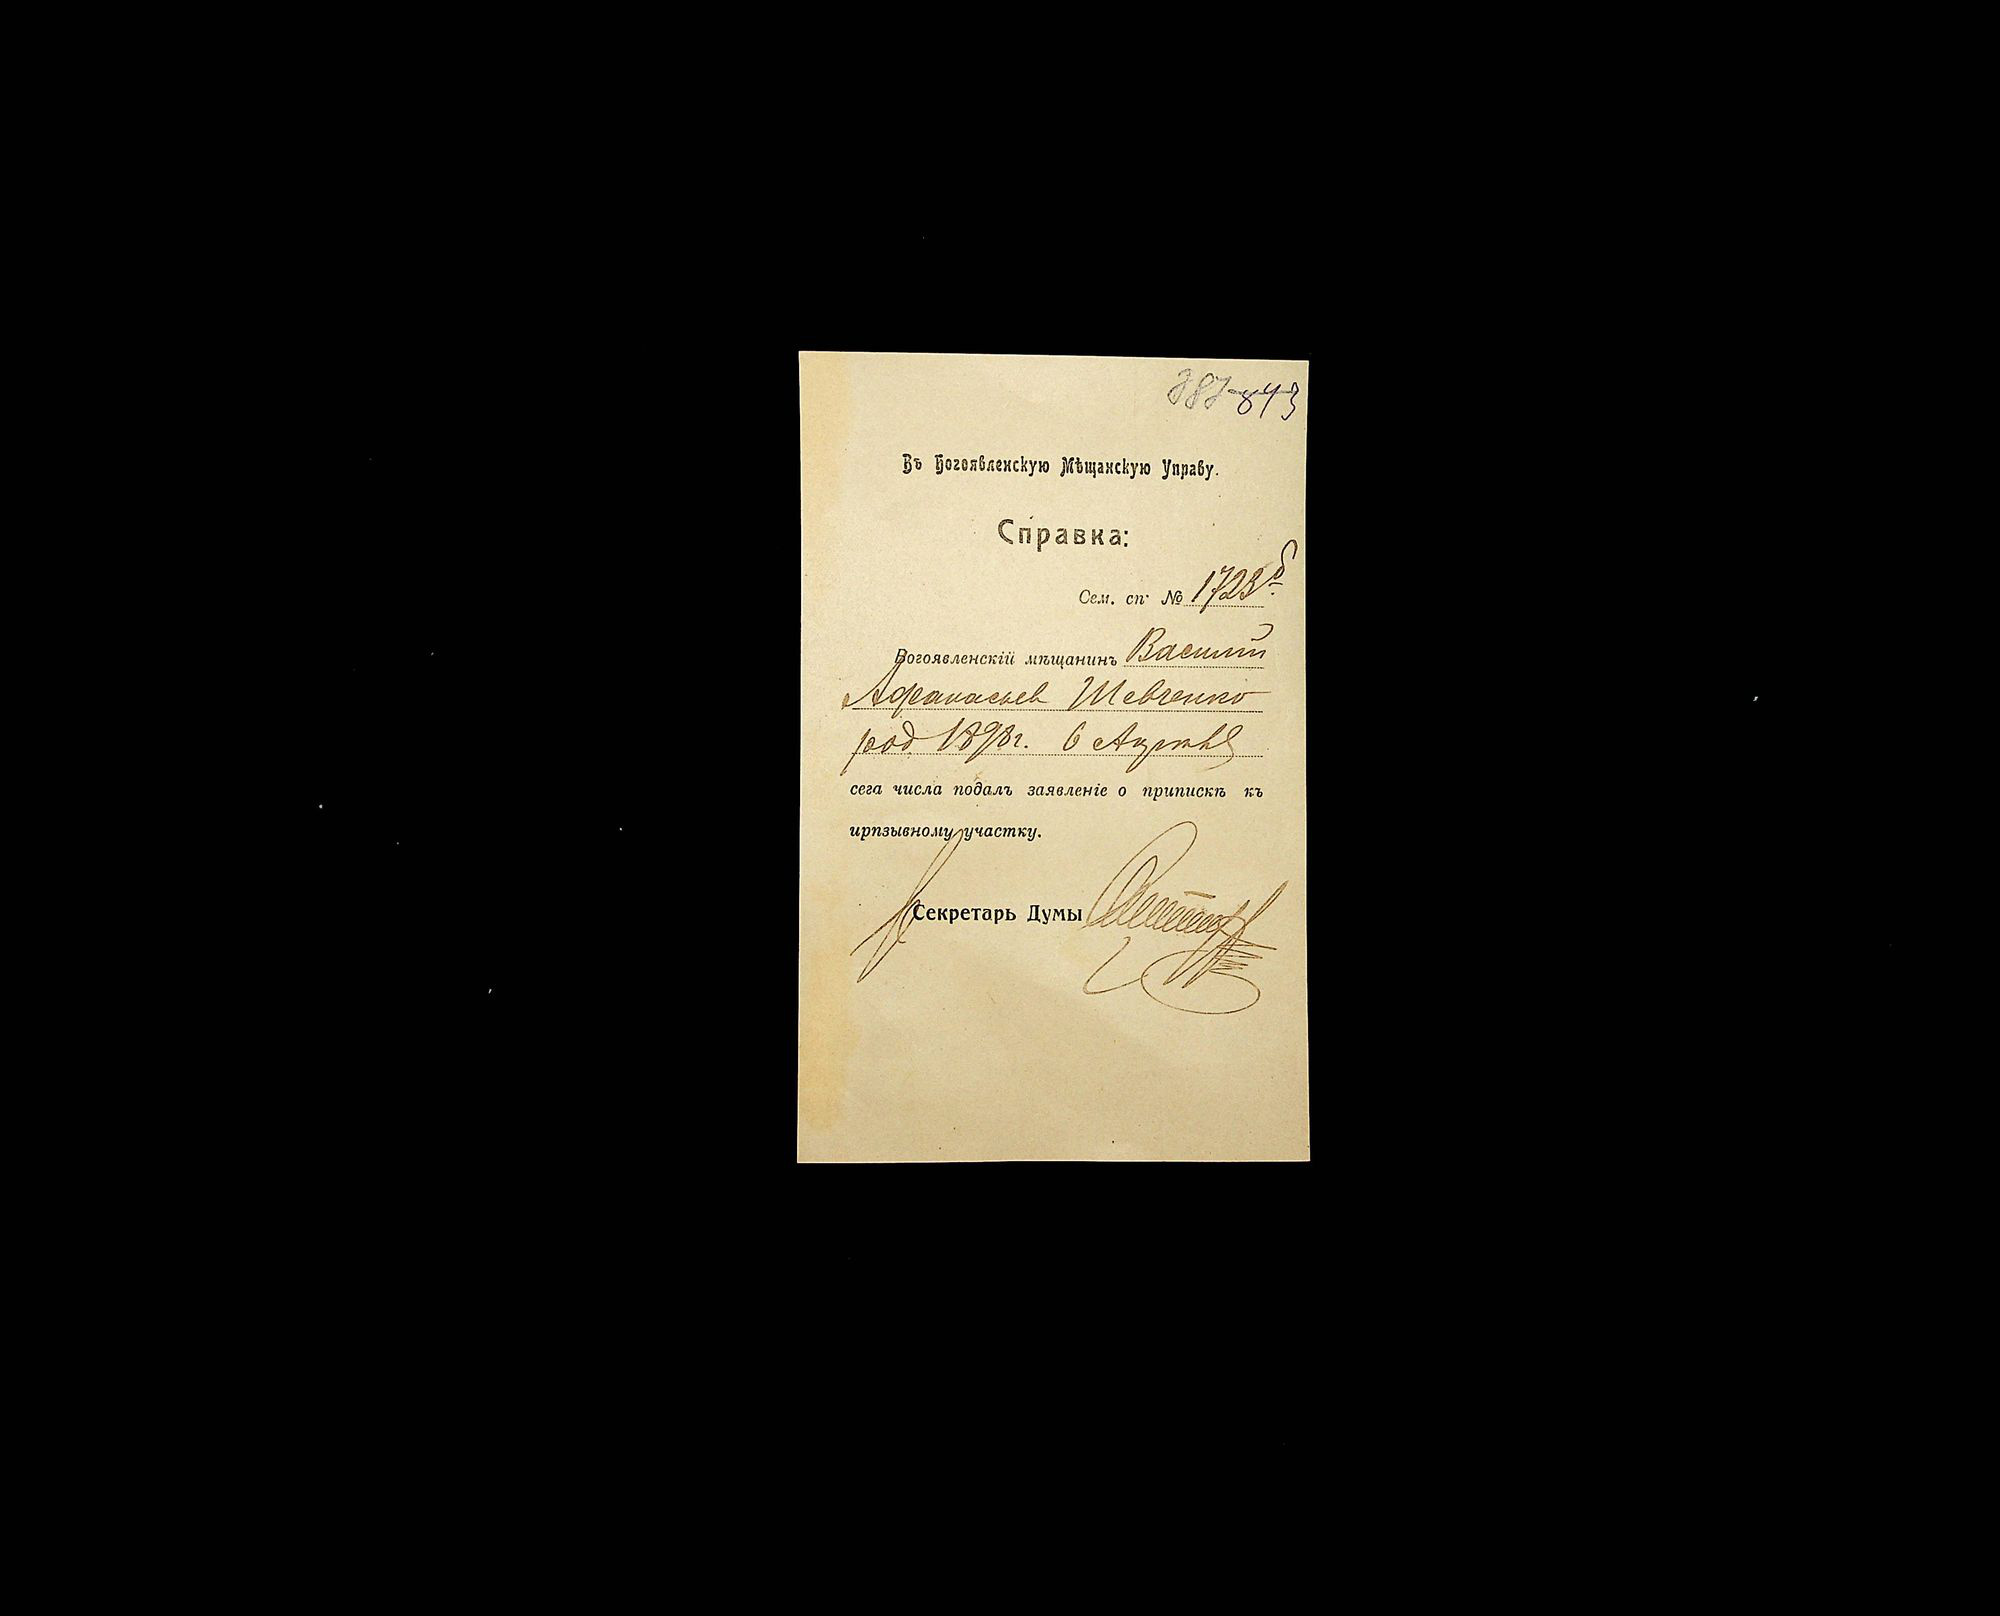 387 843
Въ Богоявленскую Мѣщанскую Управу.
Справка:
Сем. сп. № 1723б
Богоявленскій мѣщанинъ Василий
Афанасьев Шевченко
род 1898г. 6 Апреля
сега числа подалъ заявленіе о припискѣ къ
ирпзывному участку.
Секретарь Думы